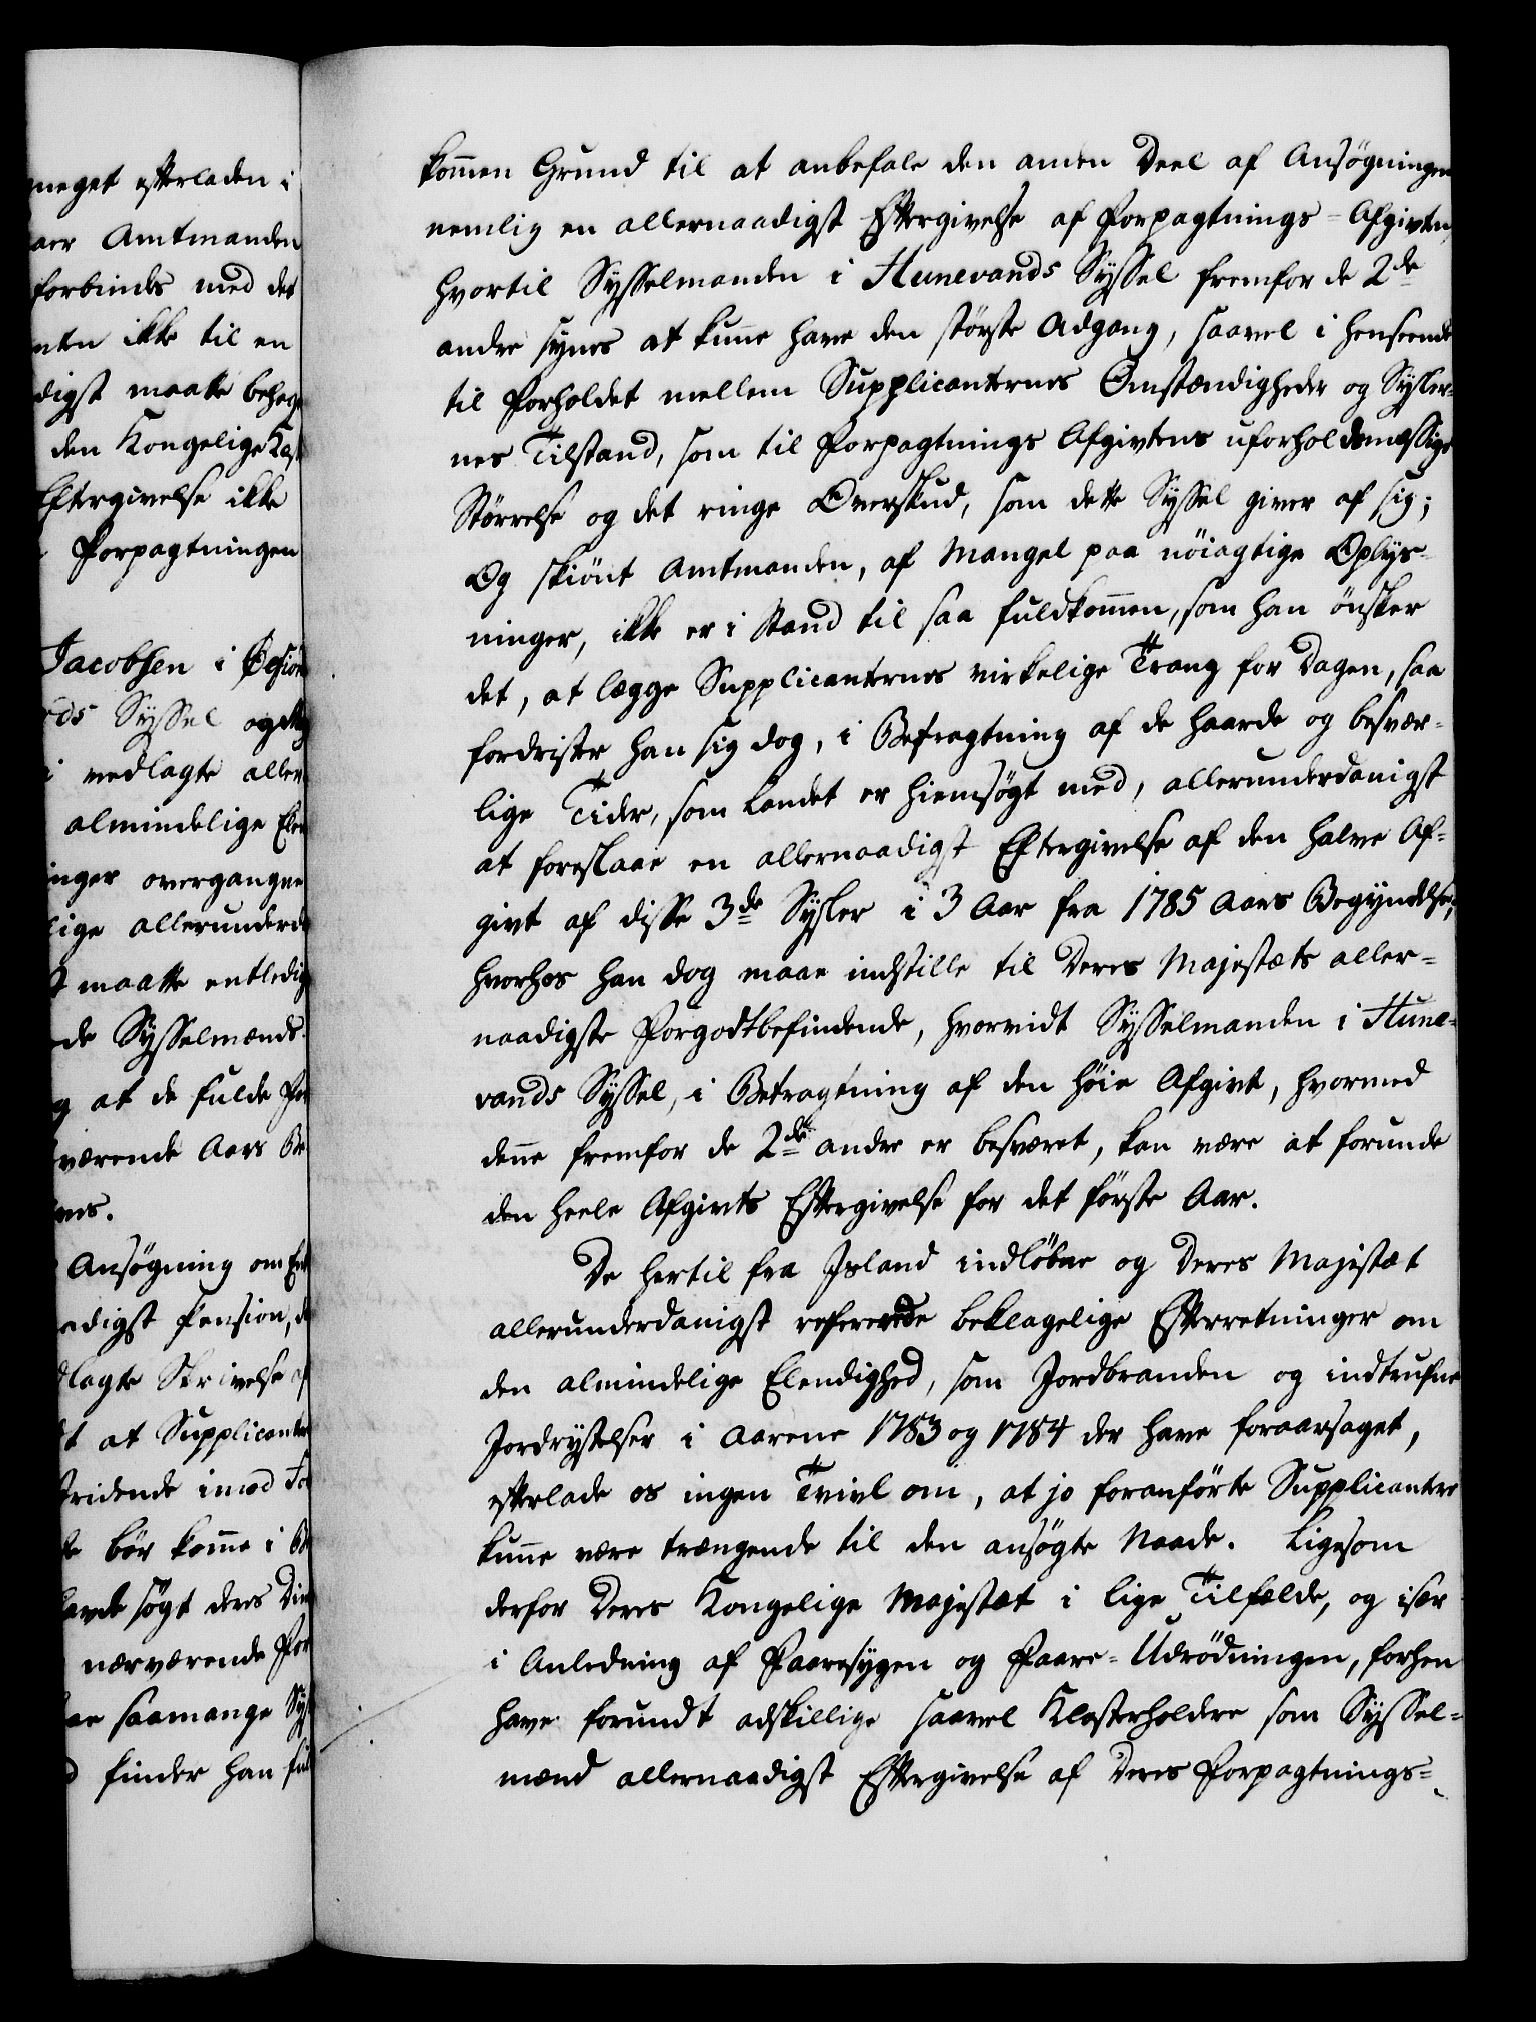 meget efterladen i
aer Amtmanden
forbindes med det
nten ikke til en
digst maatte behage
den Kongelige
Eftergivelse ikke
Forpagtningen
Jacobsen i
ds Syssel og
i vedlagte aller
almindelige
inger overgangne
lige allerunderda
maatte entledig
de Sysselmænds
g at de fulde
værende Aars
Ansøgning om
adigst Pension,
dlagte Skrivelse af
t at Supplicanter
stridende imod
bør komme i
havde søgt deres
nærværende For
saamange Sys
finder han ful
kom̅en Grund til at anbefale den anden Deel af Ansøgningen
nemlig en allernaadigst Eftergivelse af Forpagtnings-Afgivten,
hvortil Sysselmanden i Hunevands Syssel fremfor de 2de
andre synes at kun̅e have den største Adgang, saavel i Henseende
til Forholdet mellem Supplicanternes Omstændigheder og Sysler-
nes Tilstand, som til Forpagtnings Afgivtens uforholdsmæssige
Størrelse og det ringe Overskud, som dette Syssel giver af sig;
Og skiønt Amtmanden, af Mangel paa nöiagtige Oplys-
ninger, ikke er i Stand til saa fuldkom̅en, som han ønsker
det, at lægge Supplicanternes virkelige Trang for Dagen, saa
fordrister han sig dog, i Betragtning af de haarde og besvær-
lige Tider, som Landet er hiemsøgt med, allerunderdanigst
at foreslaae en allernaadigst Eftergivelse af den halve Af-
givt af disse 3de Sysler i 3 Aar fra 1785 Aars Begyndelse,
hvorhos han dog maae indstille til Deres Majestæts aller-
naadigste Forgodtbefindende, hvorvidt Sysselmanden i Hune-
vands Syssel, i Betragtning af den høie Afgivt, hvormed
den̅e fremfor de 2de andre er besværet, kan være at forunde
den heele Afgivts Eftergivelse for det første Aar.
De hertil fra Island indløbne og Deres Majestæt
allerunderdanigst refererede beklagelige Efterretninger om
den almindelige Elendighed, som Jordbranden og indtrufne
Jordrystelser i Aarene 1783 og 1784 der have foraarsaget,
efterlade os ingen Tvivl om, at jo foranførte Supplicantere
kun̅e være trængende til den ansøgte Naade. Ligesom
derfor Deres Kongelige Majestæt i lige Tilfælde, og især
i Anledning af Faaresygen og Faare-Udrødningen, forhen
have forundt adskillige saavel Klosterholdere som Syssel-
mænd allernaadigst Eftergivelse af Deres Forpagtnings-